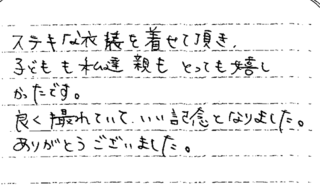 ステキな衣装を着せて頂き、
子どもも私達親もとっても嬉し
かったです。
良く撮れていて、いい記念となりました。
ありがとうございました。